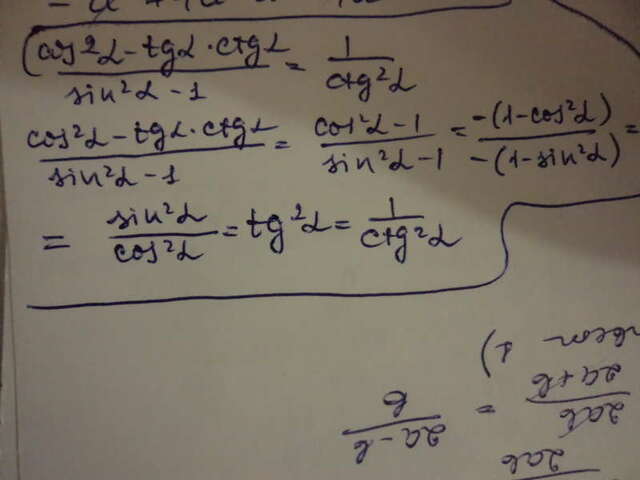 (cos²α - tgα · ctgα)/(sin²α - 1) = 1/(ctg²α)
(cos²α - tgα · ctgα)/(sin²α - 1) = (cos²α - 1)/(sin²α - 1) = (-(1-cos²α))/(-(1-sin²α)) =
= sin²α/cos²α = tg²α = 1/(ctg²α)
1)
2ab/(2a+b) = (2a-b)/b
2ab